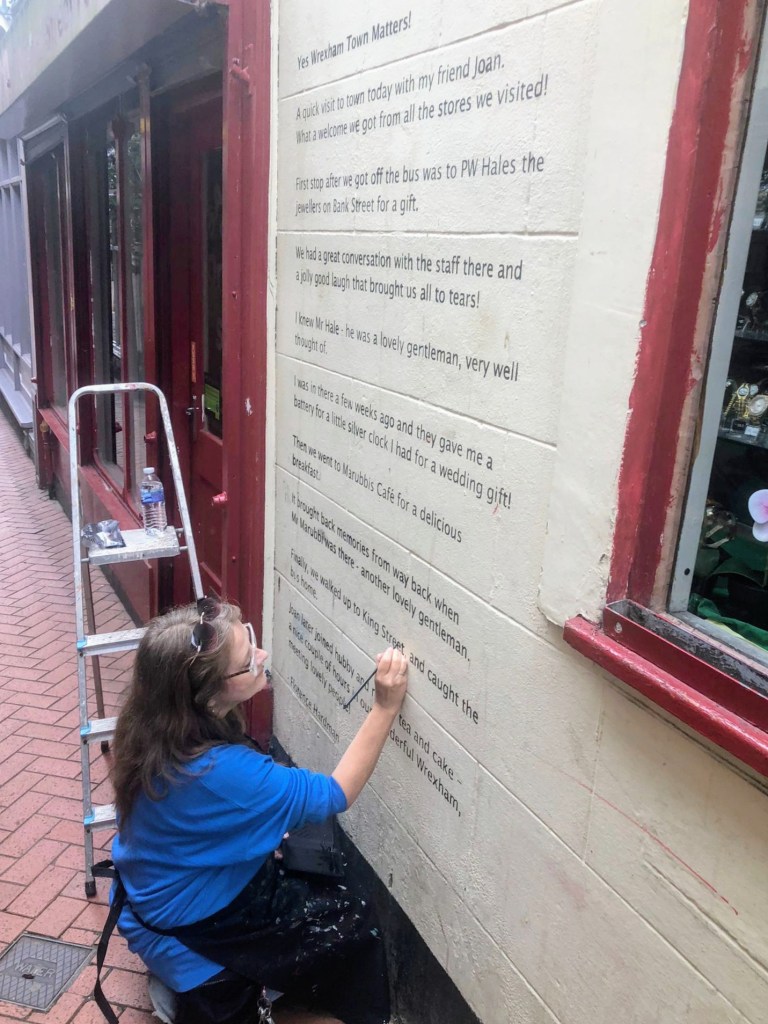 Yes Wrexham Town Matters!
A quick visit to town today with my friend Joan.
What a welcome we got from all the stores we visited!
First stop after we got off the bus was to PW Hales the
jewellers on Bank Street for a gift.
We had a great conversation with the staff there and
a jolly good laugh that brought us all to tears!
I knew Mr Hale - he was a lovely gentleman, very well
thought of.
I was in there a few weeks ago and they gave me a
battery for a little silver clock I had for a wedding gift!
Then we went to Marubbis Café for a delicious
breakfast.
It brought back memories from way back when
Mr Marubbi was there - another lovely gentleman.
Finally, we walked up to King Street and caught the
bus home.
Joan later joined hubby and tea and cake -
a nice couple of hours wonderful Wrexham,
meeting lovely people
- Florence Hardman